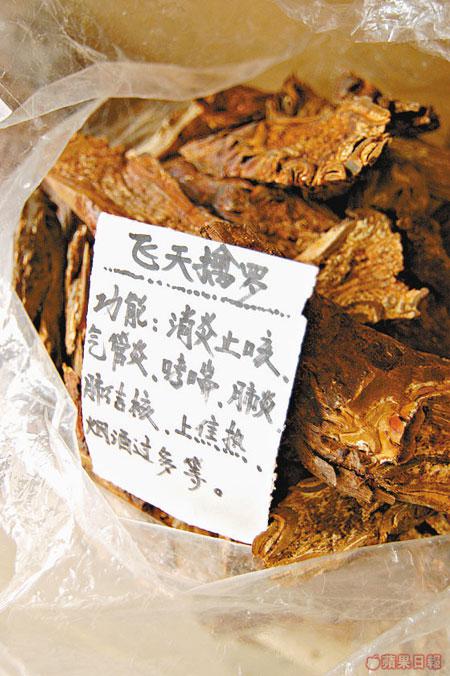 飞天擒罗
功能：消炎止咳、
气管炎、哮喘、肺炎
肺结核、上焦热、
烟酒过多等。
蘋果日報